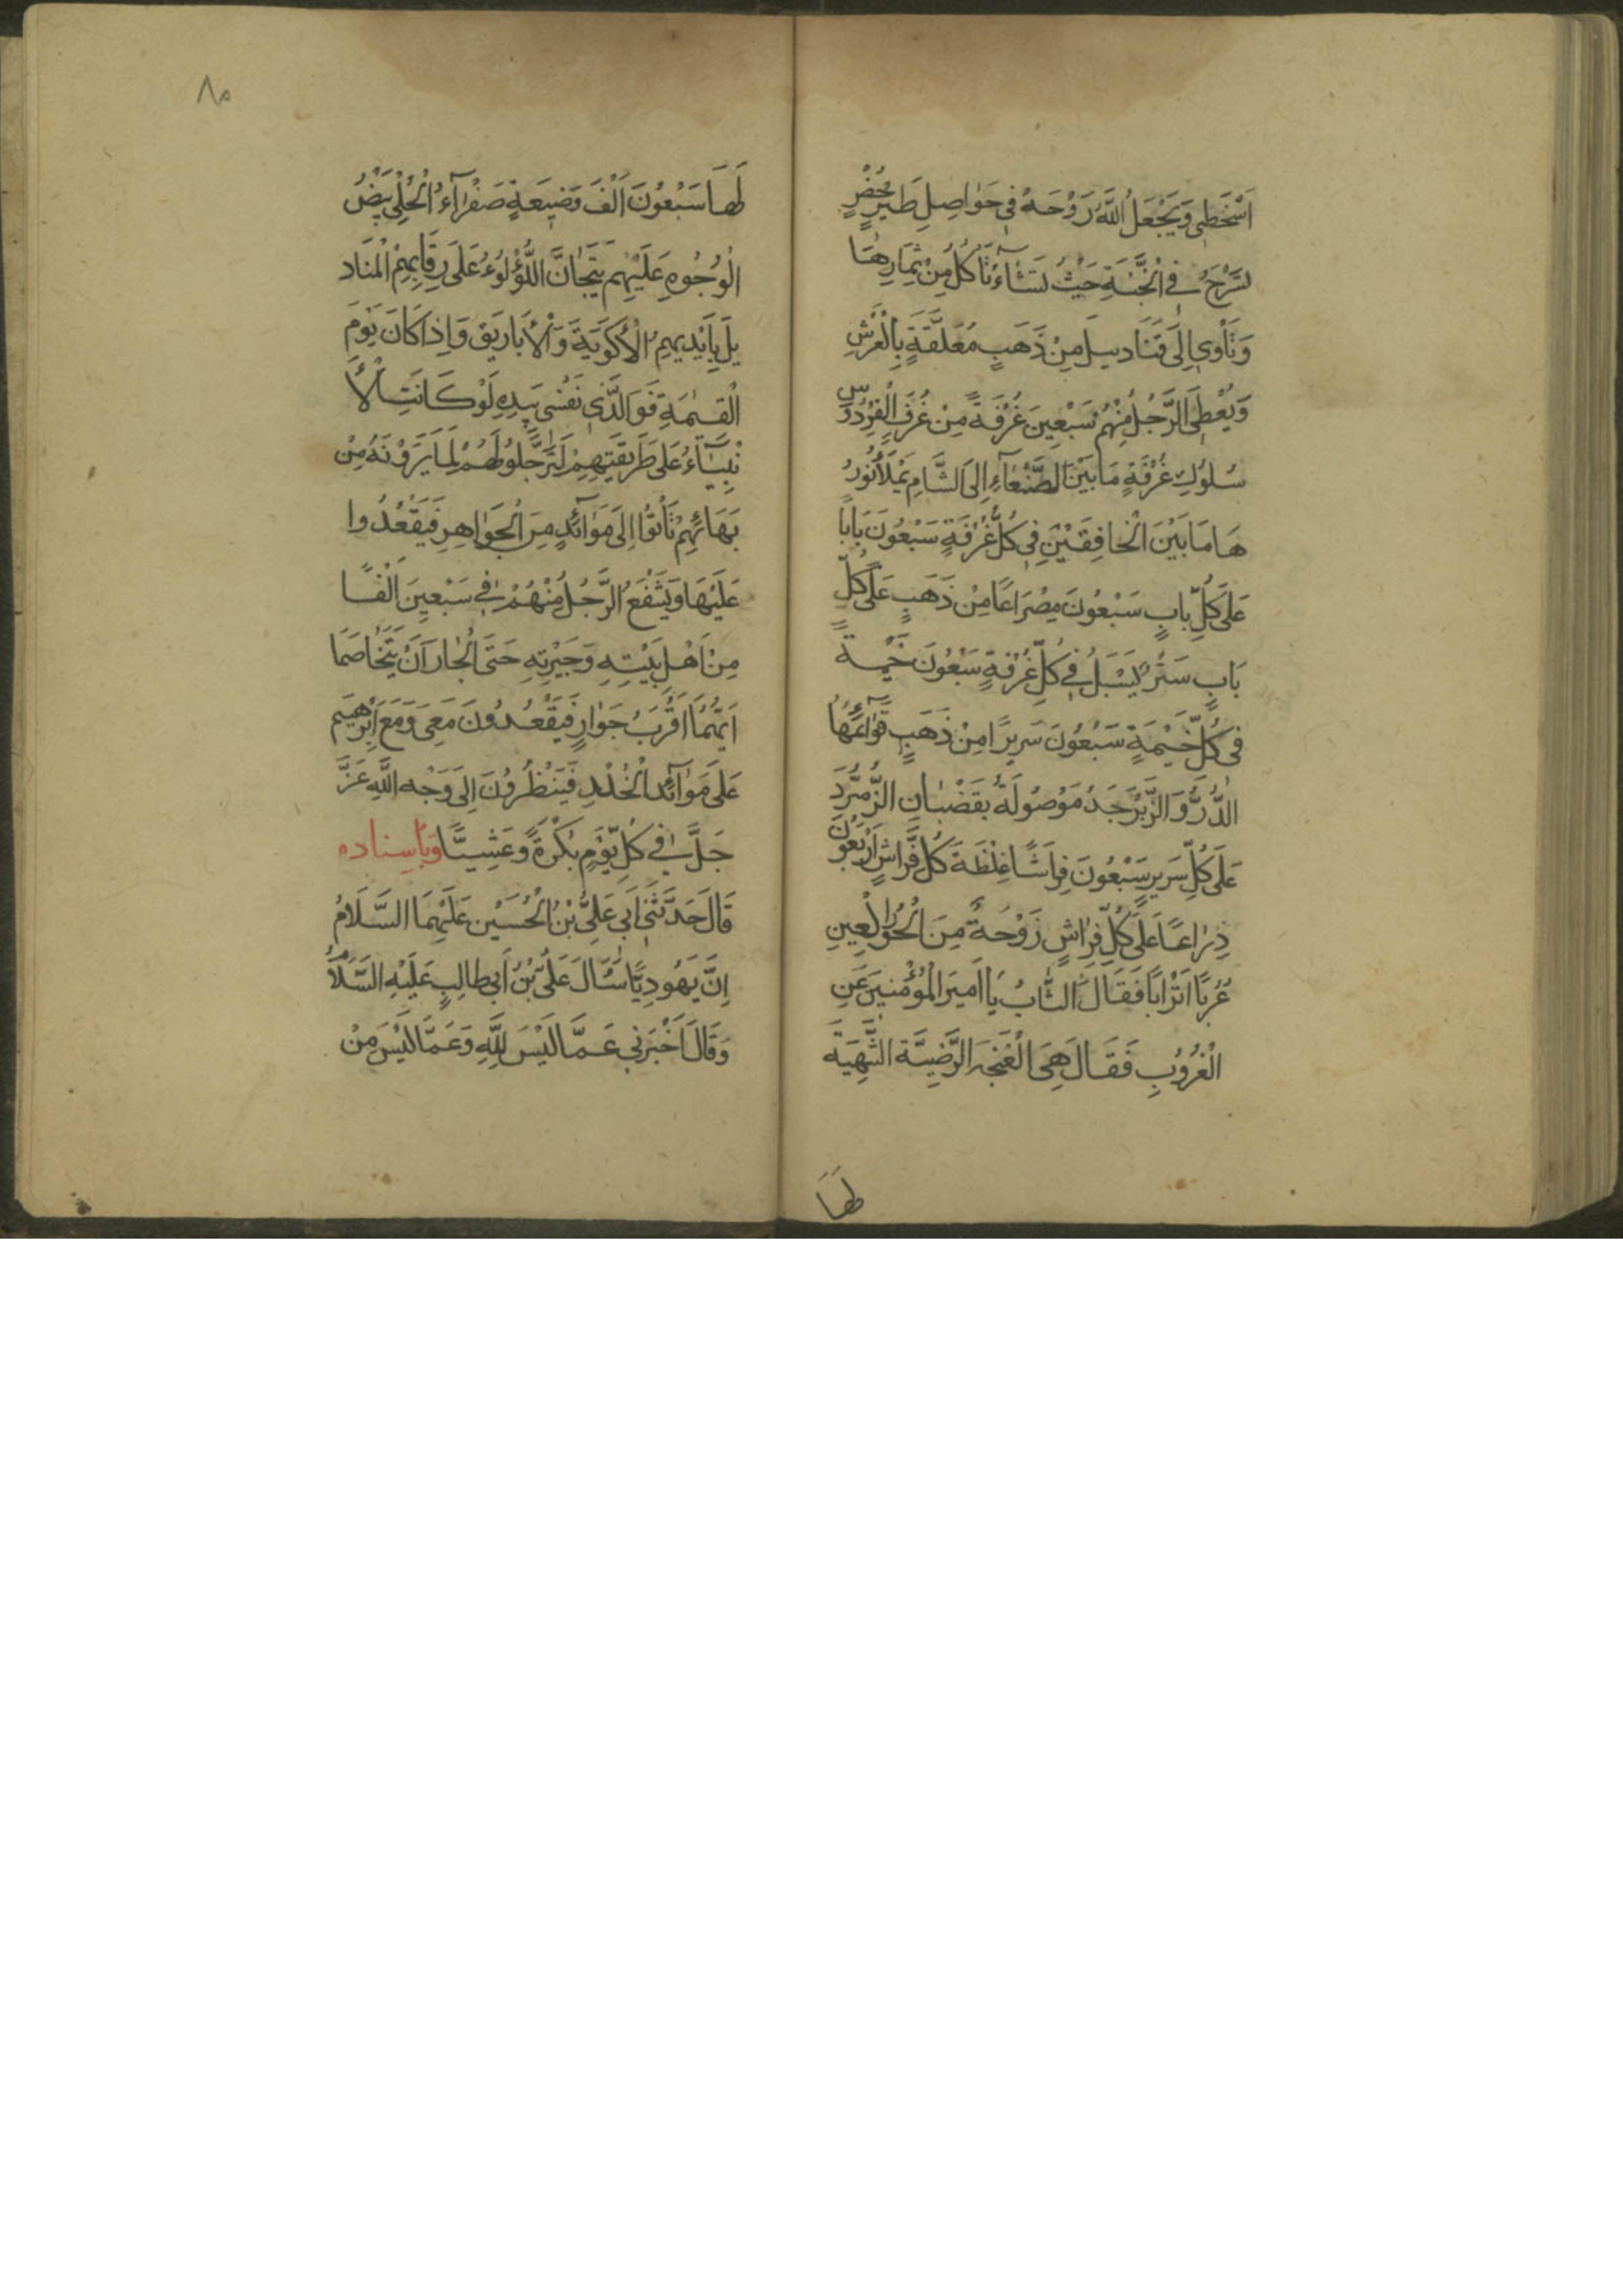 اَسْخَطَنِي وَيَجْعَلُ اللّٰهُ رُوْحَهُ فِي حَوَاصِلِ طَيْرٍ خُضْرٍ
تَسْرَحُ فِي الْجَنَّةِ حَيْثُ تَشَآءُ تَأْكُلُ مِنْ ثِمَارِهَا
وَتَأْوِي اِلَى قَنَادِيلَ مِنْ ذَهَبٍ مُعَلَّقَةٍ بِالْعَرْشِ
وَيُعْطَى الرَّجُلُ مِنْهُمْ سَبْعِينَ غُرْفَةً مِنْ غُرَفِ الْفِرْدَوْسِ
سُلُوكُ غُرْفَةٍ مَا بَيْنَ الصَّنْعَآءِ اِلَى الشَّامِ يَمْلَأُ نُورُ
هَا مَا بَيْنَ الْخَافِقَيْنِ فِي كُلِّ غُرْفَةٍ سَبْعُونَ بَابًا
عَلَى كُلِّ بَابٍ سَبْعُونَ مِصْرَاعًا مِنْ ذَهَبٍ عَلَى كُلِّ
بَابٍ سَتْرٌ يَسْبَلُ فِي كُلِّ غُرْفَةٍ سَبْعُونَ خَيْمَةً
فِي كُلِّ خَيْمَةٍ سَبْعُونَ سَرِيرًا مِنْ ذَهَبٍ قَوَآئِمُهَا
الدُّرُّ وَالزَّبَرْجَدُ مَوْصُولَةٌ بِقَضْبَانِ الزُّمُرَّدِ
عَلَى كُلِّ سَرِيرٍ سَبْعُونَ فِرَاشًا غِلْظَةَ كُلِّ فَرَاشٍ اَرْبَعُونَ
ذِرَاعًا عَلَى كُلِّ فِرَاشٍ زَوْجَةٌ مِنَ الْحُوْرِ الْعِينِ
عُرُبًا اَتْرَابًا فَقَالَ الشَّابُ يَا اَمِيرَ الْمُؤْمِنِينَ عَنِ
الْعُرُوبِ فَقَالَ هِيَ الْغَنِجَه الرَّضِيَّة الشَّهِيَة
لَهَا
٨٥
لَهَا سَبْعُونَ اَلْفَ وَصِيفَةٍ صَفْرَآءُ الْحُلِيِّ بَيْضُ
الْوُجُوهِ عَلَيْهِمْ تِيجَانُ اللُّؤْلُوءُ عَلَى رِقَابِهِمْ الْمَنَاد
يلَ بِاَيْدِيهِمِ الْاَكْوِيَةَ وَالْاَبَارِيَق وَاِذَا كَانَ يَوْمَ
الْقِيمَةِ فَوَ الَّذِي نَفْسِي بِيَدِهِ لَوْ كَانَتِ الْاَ
نْبِيَآءُ عَلَى طَرِيقَتِهِمْ لَتَرَجَّلُوا لَهُمْ لِمَا يَرَوْنَهُ مِنْ
بَهَائِهِمْ يَأْتُوا اِلَى مَوَآئِدٍ مِنَ الْجَوَاهِرِ فَيَقْعُدُوا
عَلَيْهَا وَيَشْفَعُ الرَّجُلُ مِنْهُمْ فِي سَبْعِينَ اَلْفًا
مِنْ اَهْلِ بَيْتِهِ وَجِيْرَتِهِ حَتَى الْجَارَانِ يَتَخَاصَمَا
اَيُّهُمَا اَقْرَبُ جَوَارٍ فَيَقْعُدُونَ مَعِيَ وَمَعَ اِبْرٰهِيمَ
عَلَى مَوَآئِد الْخُلْدِ فَيَنْظُرُونَ اِلَى وَجْهِ اللّٰهِ عَزَّ
جَلَّ فِي كُلِّ يَوْمٍ بُكْرَةً وَعَشِيًّا وَبِاِسناده
قَالَ حَدَّثَنِي اَبِي عَلِيُّ بْنُ الْحُسَيْن عَلَيْهِمَا السَّلَامُ
اِنَّ يَهُودِيًّا سَأَلَ عَلِيَّ بْنَ اَبِي طَالِبٍ عَلَيْهِ السَّلَامُ
وَقَالَ اَخْبِرْنِي عَمَّا لَيْسَ لِلّٰهِ وَعَمَّا لَيْسَ مِنْ